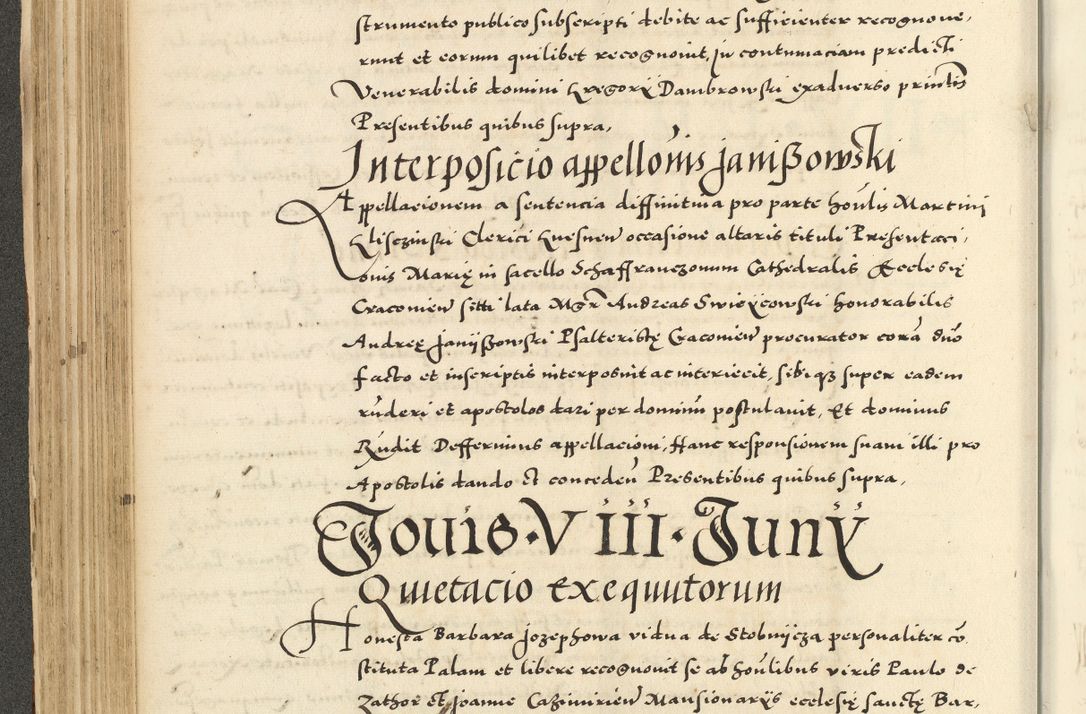 strumento publico subscripti debite ac sufficienter recognove,
runt et eorum quilibet recognovit, in contumaciam predicti
Venerabilis domini Gregorÿ Dambrowski exadverso principalis
Presentibus quibus supra,
Interposicio appellonis Janißowski
Appellacionem a sentencia diffinitiva pro parte honlis Martini
Klisczinski Clerici Gnesnen occasione altaris tituli Presentaci,
onis Marię in sacello Schaffranczonum Cathedralis Ecclesię
Cracovien sitti lata Mgr Andreas Swięcicowski honorabilis
Andreę Janißowski Psalteristę Cracovien procurator cora duo
facto et inscriptis interposuit ac interiecit, sibiqz super eadem
ruderi et apostolos dari per dominum postulavit, Et dominus
Rudit Defferimus appellacioni, Hanc responsionem suam illi pro
Apostolis dando et conceden Presentibus quibus supra,
Jovis · VIII · Junÿ
Quietacio exequutorum
Honesta Barbara Jozephowa vidua de Stobnicza personaliter co
stituta Palam et libere recognovit se ab honlibus viris Paulo de
Zathor et Joanne Cazimirien Mansionarÿs ecclesię sanctę Bar,